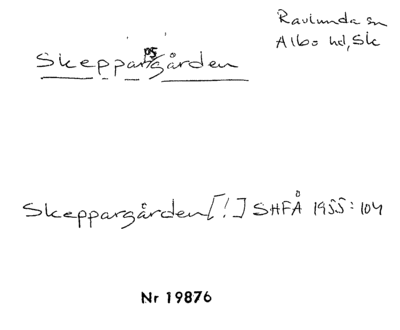 Skepparpsgården
Ravlunda sn
Albo hd, Sk
Skeppargården [!] SHFÅ 1955:104
Nr 19876